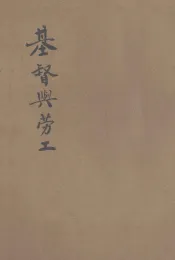 基督與勞工